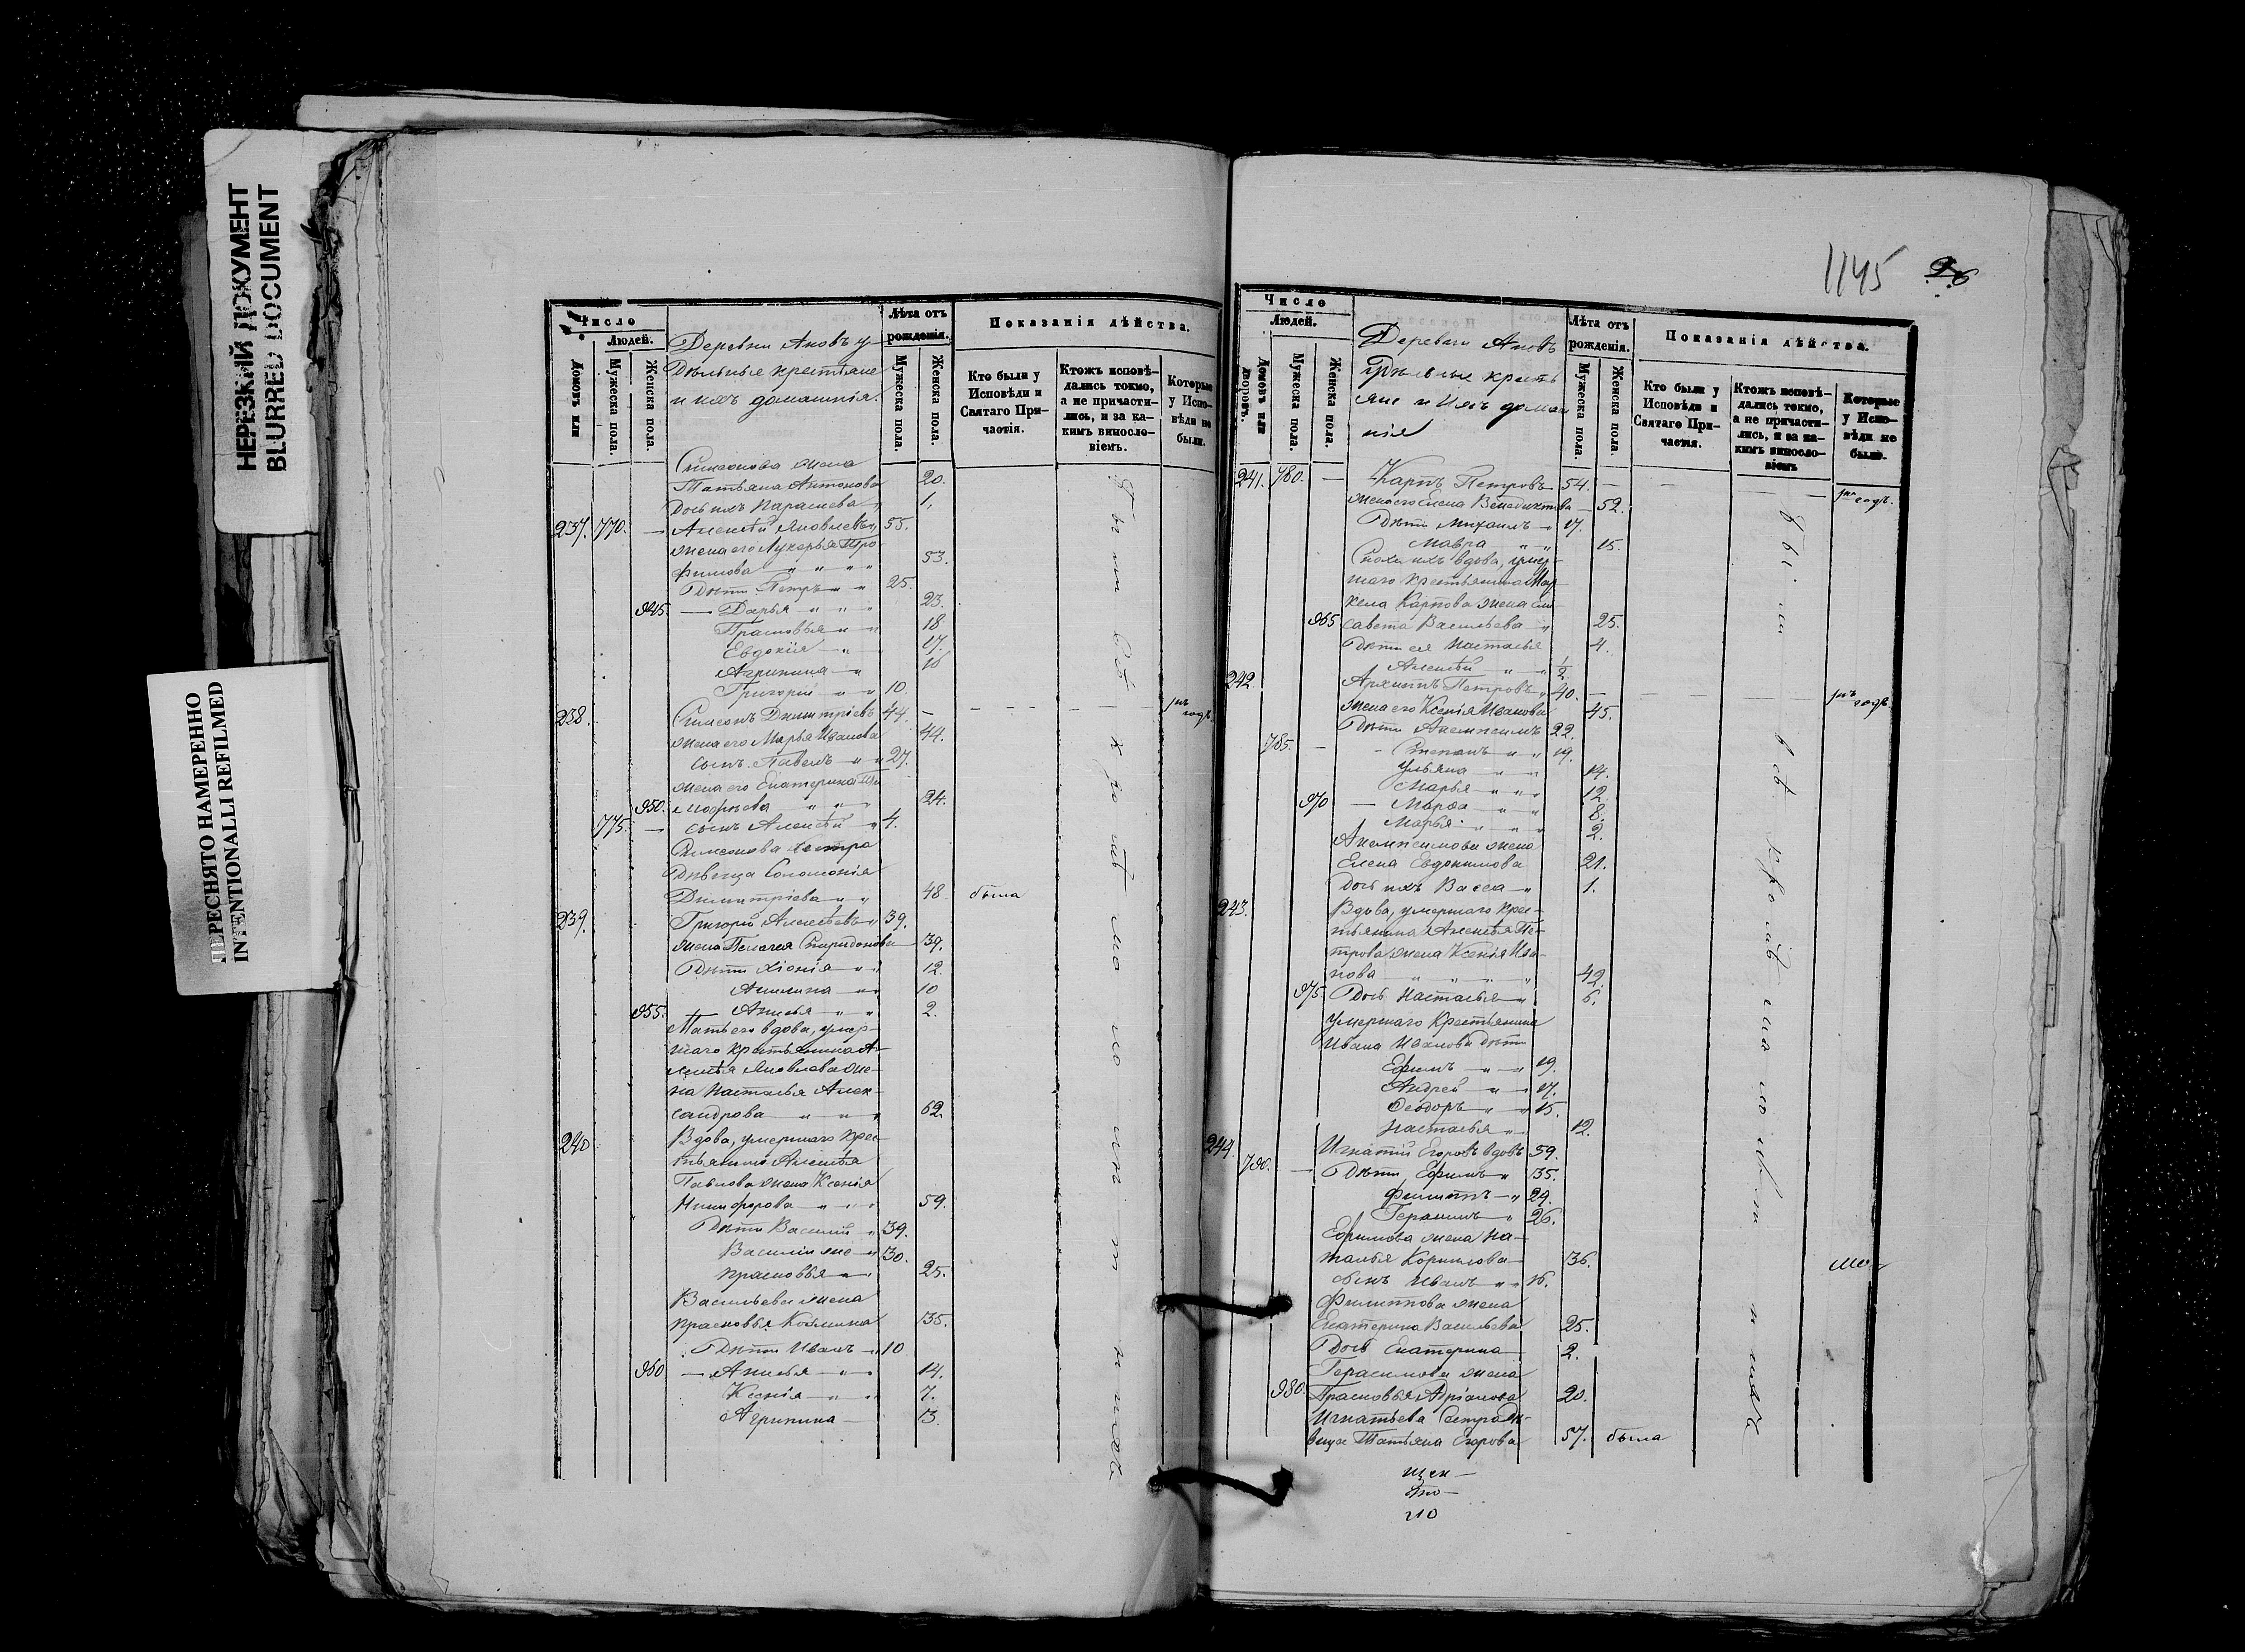 НЕРЕЗКИЙ ДОКУМЕНТ
BLURRED DOCUMENT
ПЕРЕСНЯТО НАМЕРЕННО
INTENTIONALLI REFILMED
Число
Людей.
Домовъ или
Мужеска пола.
Женска пола.
Деревни Аковъ у-
дѣльные крестьяне
и ихъ домашнія.
Лѣта отъ рожденія.
Мужеска пола.
Женска пола.
Показанія дѣйства.
Кто были у Исповѣди и Святаго При-
частія.
Ктожъ исповѣ-
дались токмо,
а не причасти-
лись, и за ка-
кимъ виносло-
віемъ.
Которые
у Испо-
вѣди не
были.
Симеонова жена
Татьяна Антонова 20.
Дочь ихъ Параскева 1,
237. 770. — Алексѣй Яковлевъ 55.
жена его Лукерья Тро-
фимова " " " " 53.
Дѣти Петръ " " 25.
945. — Дарья " " " 23.
Прасковья " " 18
Евдокія " 17.
Агрипина " 16
Григорій " " 10.
238. Симеонъ Димитріевъ 44. —
жена его Марья Иванова 44.
сынъ Павелъ " " 27.
жена его Екатерина Ти-
950. мофѣева " " " 24.
775. — сынъ Алексѣй " 4.
Симеонова сестра
Дѣвица Соломонія
Димитріева " " 48 была
239. Григорій Алексѣевъ " 39.
жена Пелагея Спиридонова 39.
Дѣти Хіонія " " 12.
Акилина " " 10
955. — Анисья " " 2.
Мать его вдова, умер-
шаго крестьянина А-
лексѣя Яковлева же-
на Настасья Алек-
сандрова " " " 62.
240 Вдова, умершаго крес-
тьянина Алексѣя
Павлова жена Ксенія
Никифорова " " " 59.
Дѣти Василій " 39.
Василій же " 30.
Прасковья " 25.
Васильева жена
Прасковья Козмина 35.
Дѣти Иванъ " 10
960 — Анисья " " 14.
Ксенія " " 7.
Агрипина — 3.
1145
Число
Людей.
Домовъ или дворовъ.
Мужеска пола.
Женска пола.
Деревни Аковъ
удѣльные кресть
яне и ихъ домаш
нія
Лѣта отъ рожденія.
Мужеска пола.
Женска пола.
Показанія дѣйства.
Кто были у
Исповѣди и
Святаго При-
частія.
Ктожъ исповѣ-
дались токмо,
а не причасти-
лись, и за ка-
кимъ виносло-
віемъ
Которые
у Испо-
вѣди не
были.
241. 780. — Карпъ Петровъ 54. —
жена его Елена Венедиктова 52.
Дѣти Михаилъ " 17.
Мавра " " 15.
Сноха ихъ вдова, умер-
шаго крестьянина Мар-
кела Карпова жена Ели-
965 савета Васильева " 25.
Дѣти ея Настасья 4.
Алексѣй " " 1/2
242. Архиппъ Петровъ " 40. —
жена его Ксенія Иванова 45.
Дѣти Акемпсимъ 22.
785. — Степанъ " " 19.
Ульяна " " 14.
Марья " " " 12.
970 — Марѳа " " 8.
Марья " " " 2.
Акемпсимова жена
Елена Евдокимова 21.
Дочь ихъ Васса " 1.
243. Вдова, умершаго крес-
тьянина Алексѣя Пе-
трова жена Ксенія Ива-
нова " " " " 42.
975 Дочь Настасья " 6.
умершаго Крестьянина
Ивана Иванова дѣти
Ефимъ " " 19.
Андрей " " 17.
Ѳеодоръ " " 15.
Настасья " 12.
244. Игнатій Егоровъ вдовъ 59.
790. — Дѣти Ефимъ " 35.
Филиппъ " 29.
Герасимъ " 26.
Ефимова жена На-
талья Корнилова 36.
сынъ Иванъ " " 16.
Филиппова жена
Екатерина Васильева 25.
Дочь Екатерина 2.
Герасимова жена
980. Прасковья Адріанова 20.
Игнатьева Сестра Дѣ-
вица Татьяна Егорова 57. была